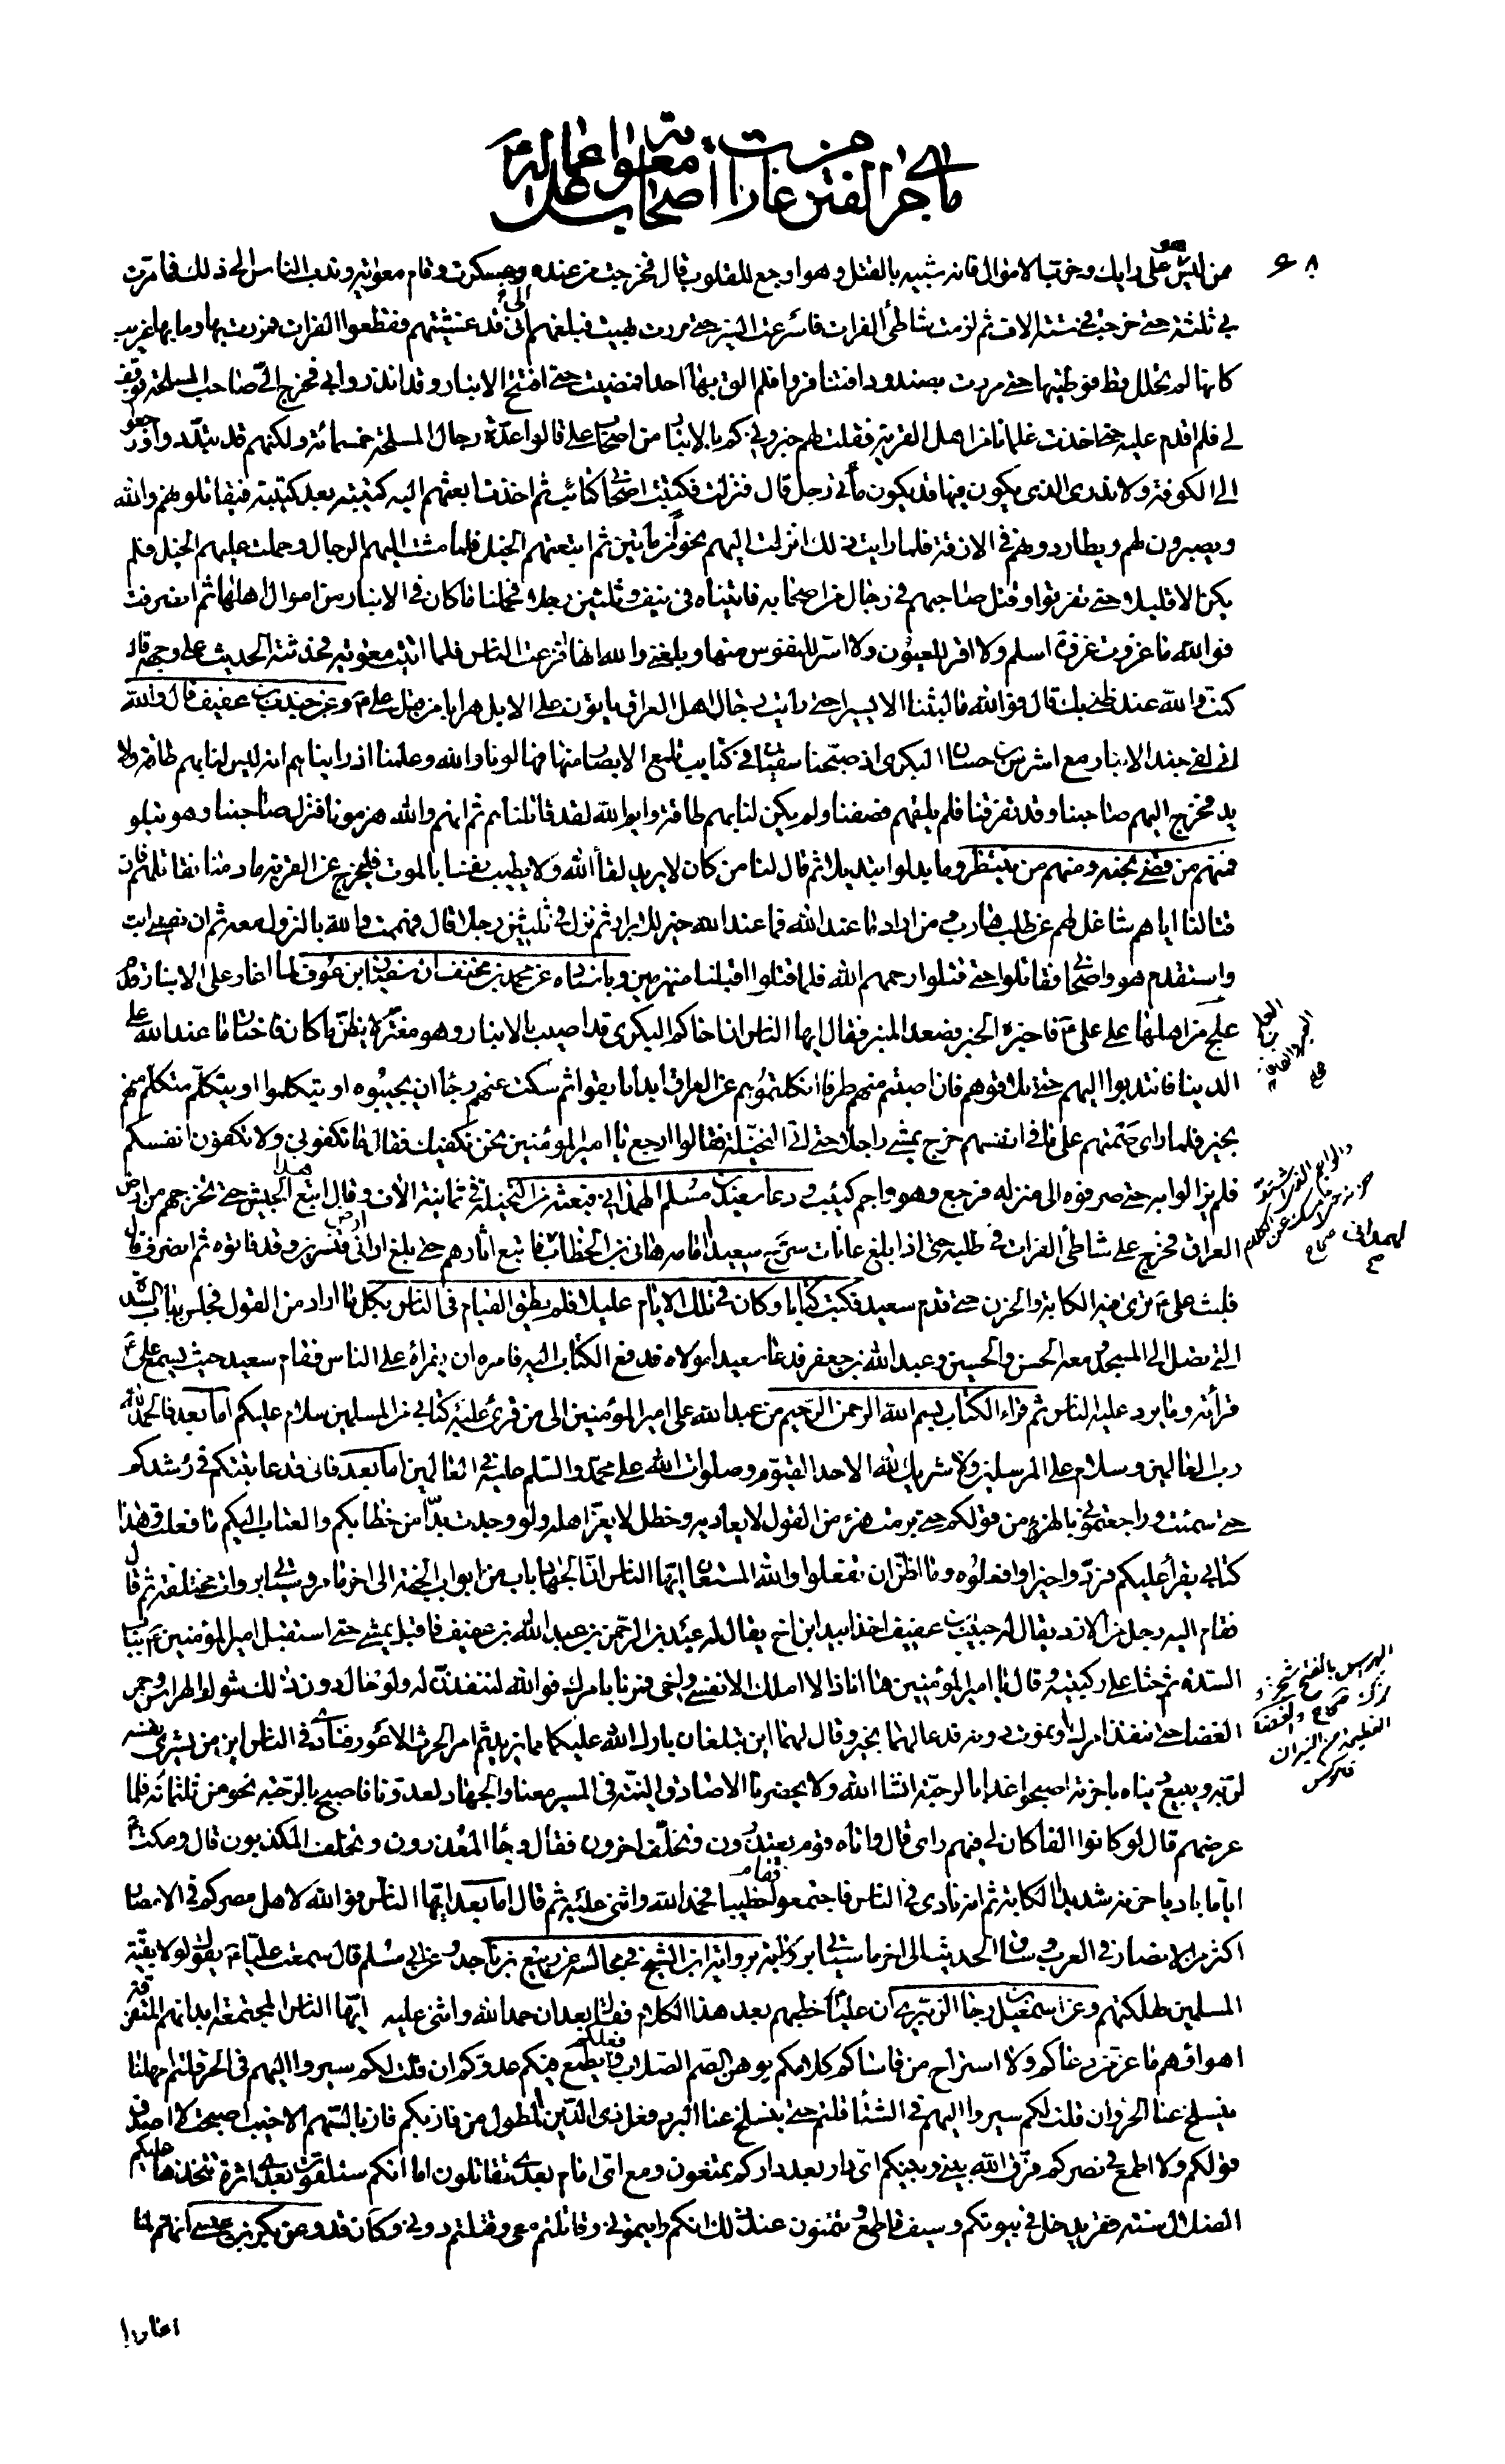 ما جرى من الفتن من غارات اصحاب معوية على اعماله ع
٦٠٨
من ليس هو على رايك وخرب الاموال فانه شبيه بالقتل وهو اوجع للقلوب قال فخرجت من عنده وعسكرت وقام معوية وندب الناس الى ذلك فما مرت
بي ثلثة حتى خرجت في ستة الاف ثم لزمت شاطئ الفرات فاسرعت السير حتى مررت بهيت فبلغهم اني قد غشيتهم فقطعوا الفرات فمررت بها وما بها عريب
كانها لم تحلل قط فوطيتها حتى مررت بصندوداء فتنافروا فلم الق بها احدا فمضيت حتى افتتح الانبار وقد انذروا بي فخرج الي صاحب المسلحة فوقف
لي فلم اقدم عليه حتى اخذت غلمانا من اهل القرية فقلت لهم خبروني كم بالانبار من اصحاب علي قالوا عدة رجال المسلحة خمسمائة ولكنهم قد تبددوا ورجعوا
الى الكوفة ولا ندري الذي يكون فيها قد يكون مأتي رجل قال فنزلت فكتبت اصحابي كتائب ثم اخذت ابعثهم اليه كتيبة بعد كتيبة فيقاتلونهم والله
ويصبرون لهم ويطاردونهم في الازقة فلما رايت ذلك انزلت اليهم نحوا من مأتين ثم اتبعتهم الخيل فلما مشت اليهم الرجال وحملت عليهم الخيل فلم
يكن الا قليلا حتى تفرقوا وقتل صاحبهم في رجال من اصحابه فاتيناه في نيف وثلثين رجلا فحملنا ما كان في الانبار من اموال اهلها ثم انصرفت
فوالله ما غزوت غزوة اسلم ولا اقر للعيون ولا اسر للنفوس منها وبلغني والله انها افزعت الناس فلما اتيت معوية فحدثته الحديث على وجهه قال
كنت والله عند ظني بك قال فوالله ما لبثنا الا يسيرا حتى رايت رجال اهل العراق ياتون على الابل هرابا من قبل علي ع وعن جندب بن عفيف قال والله
اني لفي جند الانبار مع اشرس بن حسان البكري اذ صبحنا سفيان في كتايب تلمع الابصار منها فهالونا والله وعلمنا اذ رايناهم انه ليس لنا بهم طاقة ولا
يد فخرج اليهم صاحبنا وقد تفرقنا فلم يلقهم نصفنا ولم يكن لنا بهم طاقة وايم الله لقد قاتلناهم ثم انهم والله هزمونا فنزل صاحبنا وهو يتلو
فمنهم من قضى نحبه ومنهم من ينتظر وما بدلوا تبديلا ثم قال لنا من كان لا يريد لقاء الله ولا يطيب نفسا بالموت فليخرج عن القرية ما دمنا نقاتلهم فان
قتالنا اياهم شاغل لهم عن طلب هارب ومن اراد ما عند الله فما عند الله خير للابرار ثم نزل في ثلثين رجلا قال فهممت والله بالنزول معه ثم ان نفسي ابت
واستقدم هو واصحابه فقاتلوا حتى قتلوا رحمهم الله فلما قتلوا اقبلنا منهزمين وباسناده عن محمد بن مخنف ان سفيان ابن عوف لما اغار على الانبار قدم
علج من اهلها على علي ع فاخبره الخبر فصعد المنبر فقال ايها الناس ان اخاكم البكري قد اصيب بالانبار وهو مغتر لا يظن ما كان فاختار ما عند الله على
الدينا فانتدبوا اليهم حتى تلاقوهم فان اصبتم منهم طرفا انكلتموهم عن العراق ابدا ما بقوا ثم سكت عنهم رجاء ان يجيبوه او يتكلموا او يتكلم متكلم منهم
بخير فلما راى صمتهم على ما في انفسهم خرج يمشي راجلا حتى اتى النخيلة فقالوا ارجع يا امير المؤمنين نحن نكفيك فقال ما تكفوني ولا تكفون انفسكم
فلم يزالوا به حتى صرفوه الى منزله فرجع وهو واجم كئيب ودعا سعيد بن مسلم الهمداني فبعثه من النخيلة في ثمانية الاف وقال اتبع هذا الجيش حتى تخرجهم من ارض
العراق فخرج على شاطئ الفرات في طلبه حتى اذا بلغ عانات سرح سعيد امامه هاني بن الخطاب فاتبع اثارهم حتى بلغ اداني ارض قنسرين وقد فاتوه ثم انصرف قال
فلبث علي ع ترى فيه الكابة والحزن حتى قدم سعيد فكتب كتابا وكان في تلك الايام عليلا فلم يطق القيام في الناس بكل ما اراد من القول فجلس بباب السدة
التي تصل الى المسجد ومعه الحسن والحسين وعبد الله بن جعفر فدعا سعيدا مولاه فدفع الكتاب اليه فامره ان يقراه على الناس فقام سعيد حيث يسمع علي ع
قرأته وما يرد عليه الناس ثم قراء الكتاب بسم الله الرحمن الرحيم من عبد الله علي امير المؤمنين الى من قرئ عليه كتابي من المسلمين سلام عليكم اما بعد فالحمد لله
رب العالمين وسلام على المرسلين ولا شريك لله الاحد القيوم وصلوات الله على محمد والسلم عليه في العالمين اما بعد فاني قد عاتبتكم في رشدكم
حتى سئمت وراجعتموني بالهزء من قولكم حتى برمت هزء من القول لا يعاد به وخطل لا يعز اهله ولو وجدت بدا من خطابكم والعتاب اليكم ما فعلت وهذا
كتابي يقرأ عليكم فردوا خيرا وافعلوه وما اظن ان تفعلوا والله المستعان ايها الناس ان الجهاد باب من ابواب الجنة الى اخر ما مر وسيأتي بروايات مختلفة ثم قال
فقام اليه رجل من الازد يقال له حبيب بن عفيف اخذ بيد ابن اخ يقال له عبد الرحمن بن عبد الله بن عفيف فاقبل يمشي حتى استقبل امير المؤمنين ع بباب
السدة ثم جثا على ركبتيه وقال يا امير المؤمنين ها انا ذا لا املك الا نفسي واخي فمرنا بامرك فوالله لننفذن له ولو حال دون ذلك شوك الهراس وجمر
الغضا حتى ننفذ امرك او نموت دونه فدعا لهما بخير وقال لهما اين تبلغان بارك الله عليكما مما نريد ثم امر الحرث الاعور فنادى في الناس اين من يشري نفسه
لربه ويبيع دنياه باخرته اصبحوا غدا بالرحبة انشا الله ولا يحضرنا الا صادق النية في المسير معنا والجهاد لعدونا فاصبح بالرحبة نحو من ثلثمائة فلما
عرضهم قال لو كانوا الفا كان لي فيهم راي قال واتاه قوم يعتذرون وتخلف اخرون فقال وجاء المعذرون وتخلف المكذبون قال ومكث ع
اياما باديا حزنه شديد الكابة ثم انه نادى في الناس فاجتمعوا فقام خطيبا فحمد الله واثنى عليه ثم قال اما بعد ايها الناس فوالله لاهل مصركم في الامصار
اكثر من الانصار في العرب وساق الحديث الى اخر ما سيأتي برواية ابن الشيخ في مجالسه عن ربيع بن ناجد وعن ابي مسلم قال سمعت عليا ع يقول لولا بقية
المسلمين لهلكتهم وعن اسمعيل بن رجا الزبيدي ان عليا ع خطبهم بعد هذا الكلام فقال بعد ان حمد الله واثنى عليه ايها الناس المجتمعة ابدانهم المتفرقة
اهواؤهم ما عز من دعاكم ولا استراح من قاساكم كلامكم يوهن الصم الصلاب وفعلكم يطمع فيكم عدوكم ان قلت لكم سيروا اليهم في الحر قلتم امهلنا
ينسلخ عنا الحر وان قلت لكم سيروا اليهم في الشتا قلتم حتى ينسلخ عنا البرد فعل ذي الدين المطول من فاز بكم فاز بالسهم الاخيب اصبحت لا اصدق
قولكم ولا اطمع في نصركم فرق الله بيني وبينكم اي دار بعد داركم تمنعون ومع اي امام بعدي تقاتلون اما انكم ستلقون بعدي اثرة يتخذها عليكم
الضلال سنة وفقر يدخل في بيوتكم وسيف قاطع وتتمنون عند ذلك انكم رايتموني وقاتلتم معي وقتلتم دوني وكان قد وعن بكر بن عيسى انهم لما
اغاروا